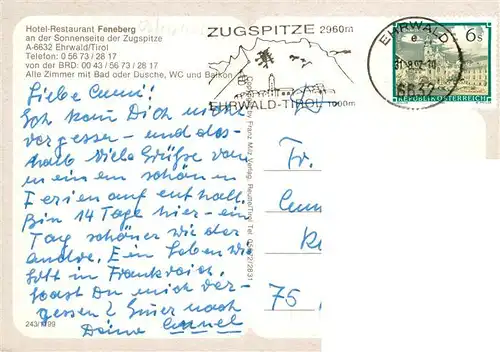 Hotel-Restaurant Feneberg
an der Sonnenseite der Zugspitze
A-6632 Ehrwald/Tirol
Telefon: 0 56 73 / 28 17
von der BRD: 00 43 / 56 73 / 28 17
Alle Zimmer mit Bad oder Dusche, WC und Balkon
Liebe
Ich kann Dich nicht
vergessen - und des-
halb viele Grüße von
meinem schönen
Ferienaufenthalt.
Bin 14 Tage hier - ein
Tag schöner wie der
andre. Ein Leben wie
Gott in Frankreich.
Hast Du mich ver-
gessen?
Deine
243/1199
ZUGSPITZE 2960m
EHRWALD-TIROL 1000m
EHRWALD
6632
6s
REPUBLIK ÖSTERREICH
by Franz Milz Verlag, Reutte/Tirol Tel. 05672/2831
Fr.
75